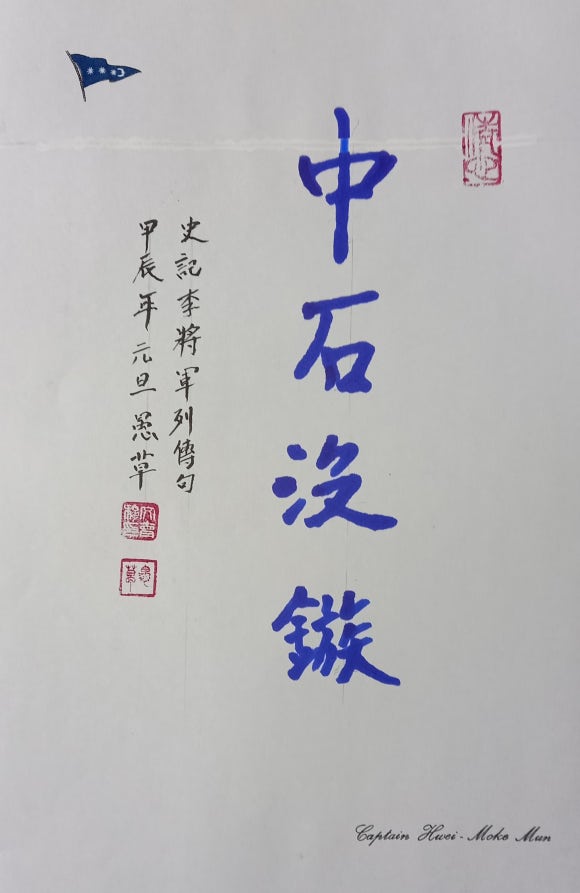 中石没鏃
史記李將軍列傳句
甲辰年元旦愚草
Captain Hwei-Moke Mun